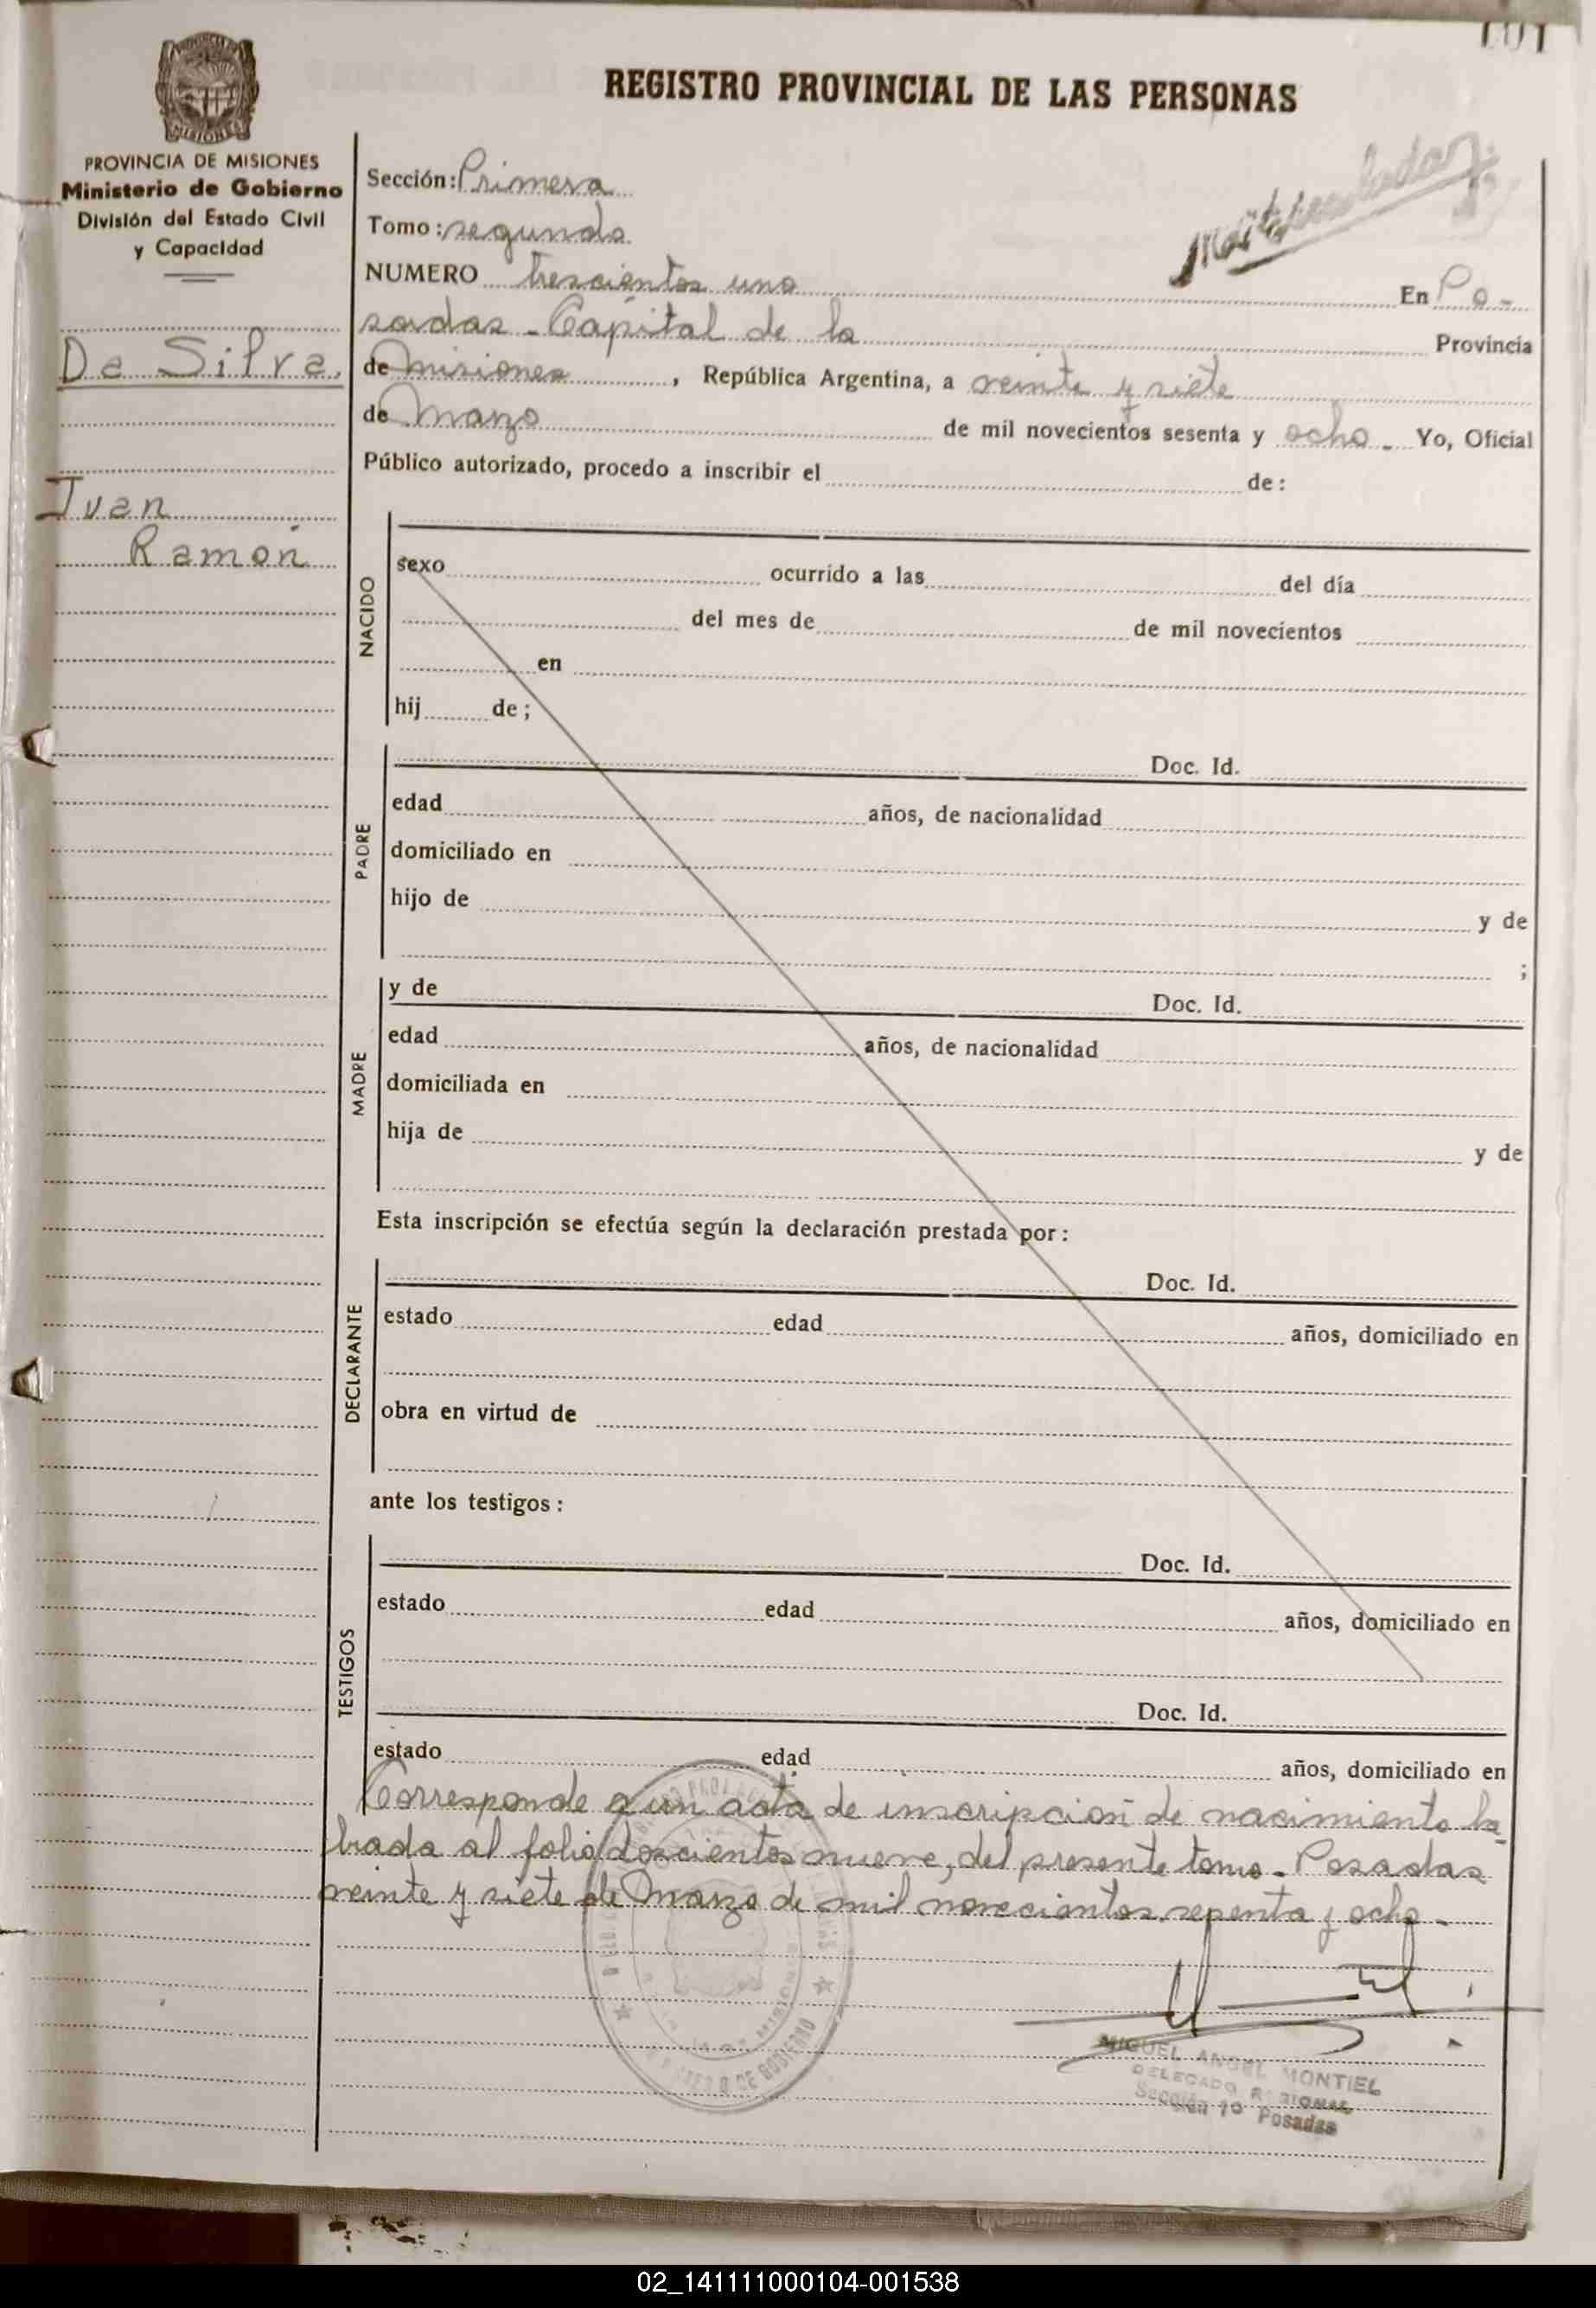 101
REGISTRO PROVINCIAL DE LAS PERSONAS
PROVINCIA DE MISIONES
Ministerio de Gobierno
División del Estado Civil
y Capacidad
De Silva,
Ivan
Ramón
Sección: Primera
Tomo: segundo
NUMERO trescientos uno En Po-
sadas - Capital de la Provincia
de Misiones, República Argentina, a veinte y siete
de Marzo de mil novecientos sesenta y ocho - Yo, Oficial
Público autorizado, procedo a inscribir el de:
NACIDO
sexo ocurrido a las del día
del mes de de mil novecientos
en
hij de;
PADRE
Doc. Id.
edad años, de nacionalidad
domiciliado en
hijo de y de
;
MADRE
y de Doc. Id.
edad años, de nacionalidad
domiciliada en
hija de y de
Esta inscripción se efectúa según la declaración prestada por:
DECLARANTE
Doc. Id.
estado edad años, domiciliado en
obra en virtud de
ante los testigos:
TESTIGOS
Doc. Id.
estado edad años, domiciliado en
Doc. Id.
estado edad años, domiciliado en
Corresponde a un acta de inscripción de nacimiento la-
brada al folio doscientos nueve, del presente tomo - Posadas
veinte y siete de Marzo de mil novecientos sesenta y ocho -
MIGUEL ANGEL MONTIEL
DELEGADO REGIONAL
Sección 1º Posadas
02_141111000104-001538